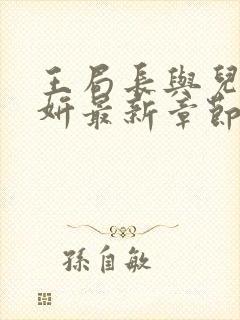 王局長與兒
妍最新章節
孫自敏